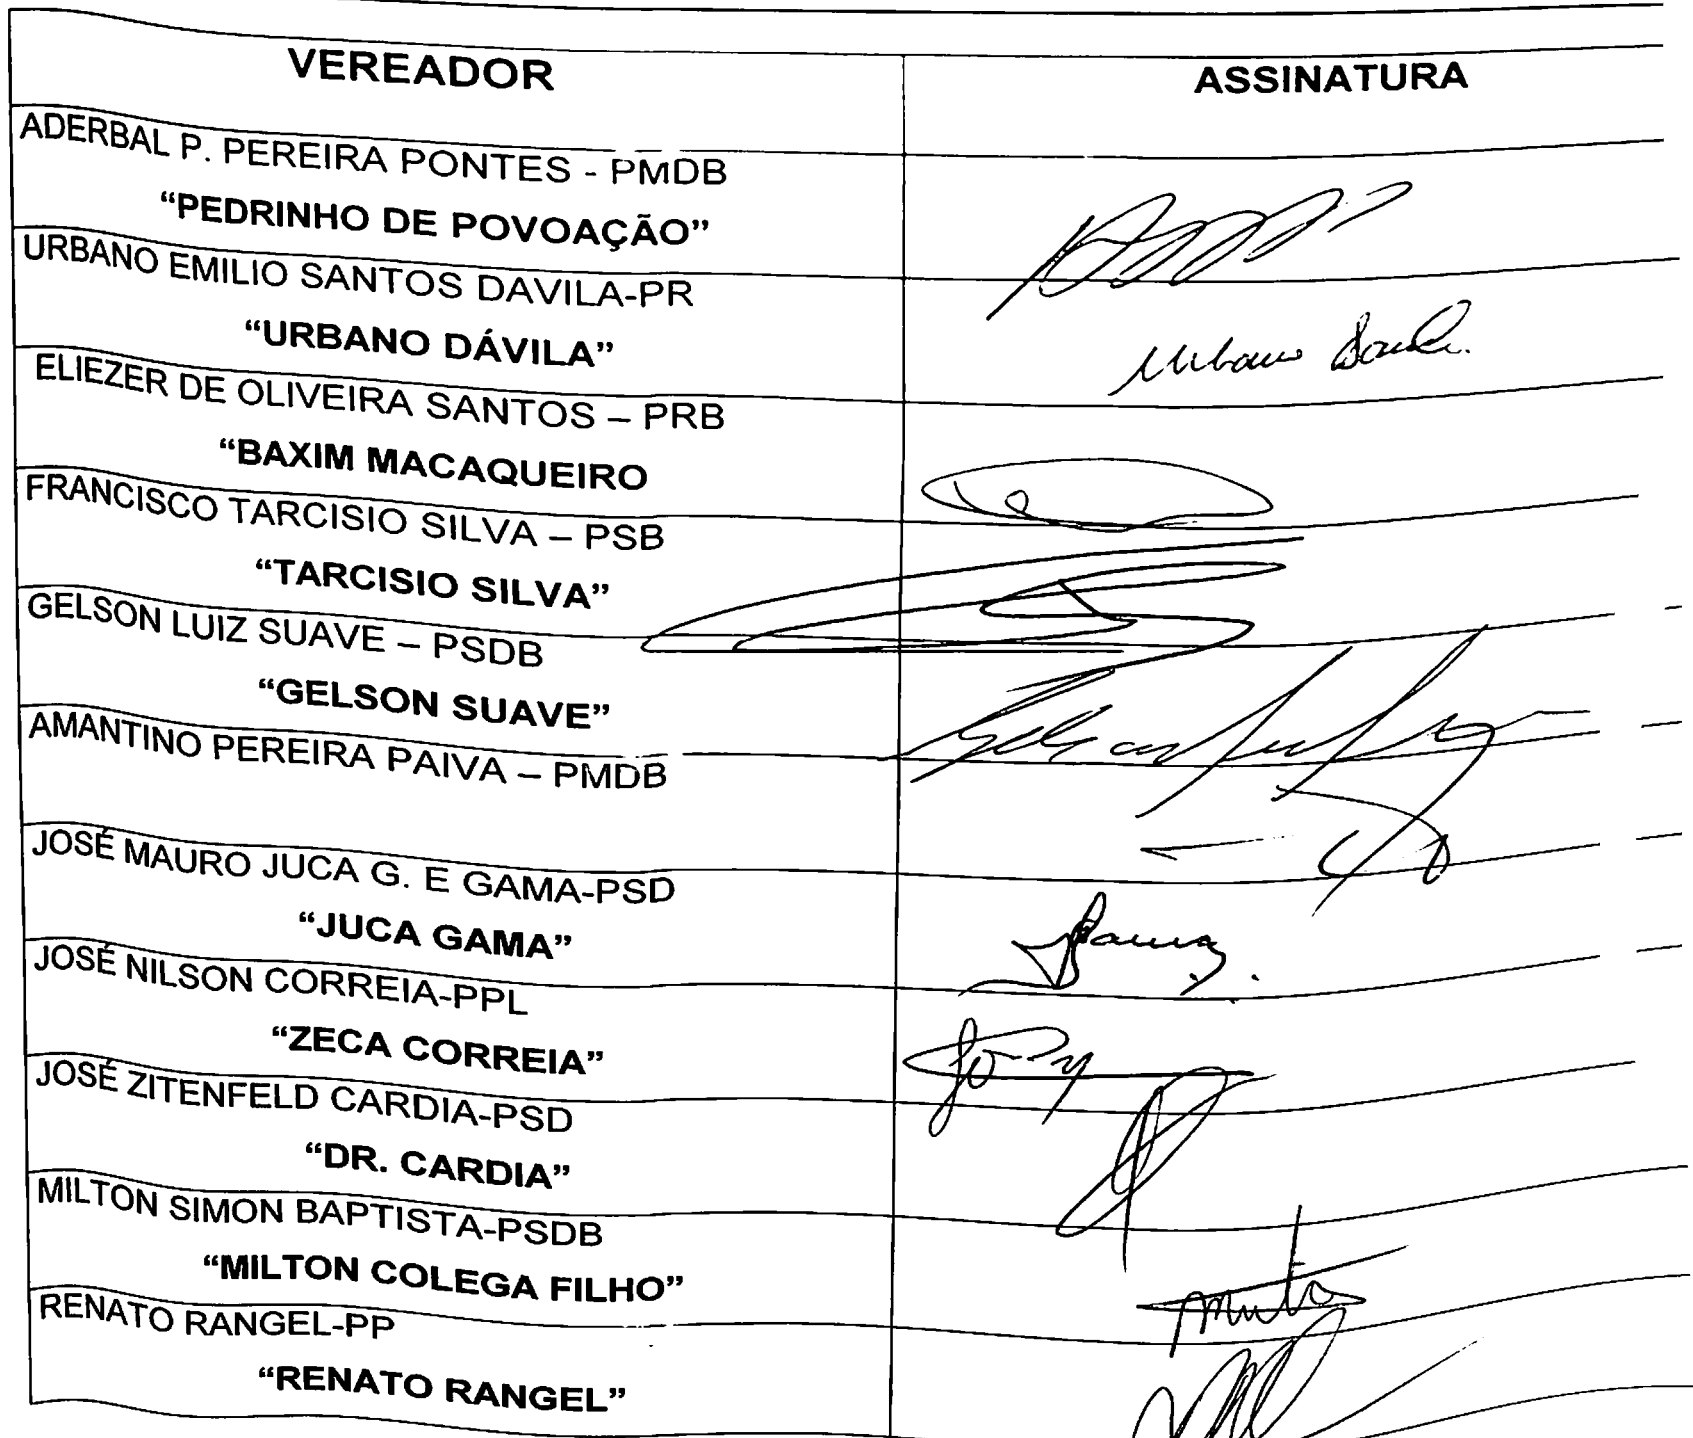 VEREADOR
ASSINATURA
ADERBAL P. PEREIRA PONTES - PMDB
“PEDRINHO DE POVOAÇÃO”
URBANO EMILIO SANTOS DAVILA-PR
“URBANO DÁVILA”
Urbano
ELIEZER DE OLIVEIRA SANTOS – PRB
“BAXIM MACAQUEIRO
FRANCISCO TARCISIO SILVA – PSB
“TARCISIO SILVA”
GELSON LUIZ SUAVE – PSDB
“GELSON SUAVE”
AMANTINO PEREIRA PAIVA – PMDB
JOSÉ MAURO JUCA G. E GAMA-PSD
“JUCA GAMA”
JOSÉ NILSON CORREIA-PPL
“ZECA CORREIA”
JOSÉ ZITENFELD CARDIA-PSD
“DR. CARDIA”
MILTON SIMON BAPTISTA-PSDB
“MILTON COLEGA FILHO”
RENATO RANGEL-PP
“RENATO RANGEL”